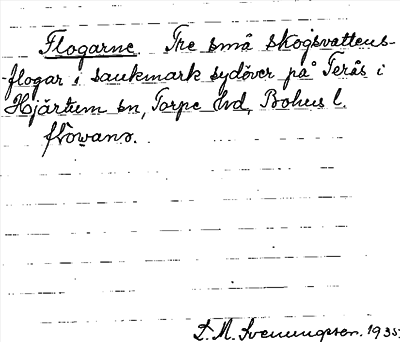 Flogarne. Tre små skogsvattens-
flogar i sankmark sydöver på Terås i
Hjärtum sn, Torpe hd, Bohus l.
flowanɔ.
D. M. Svenungsson. 1935.